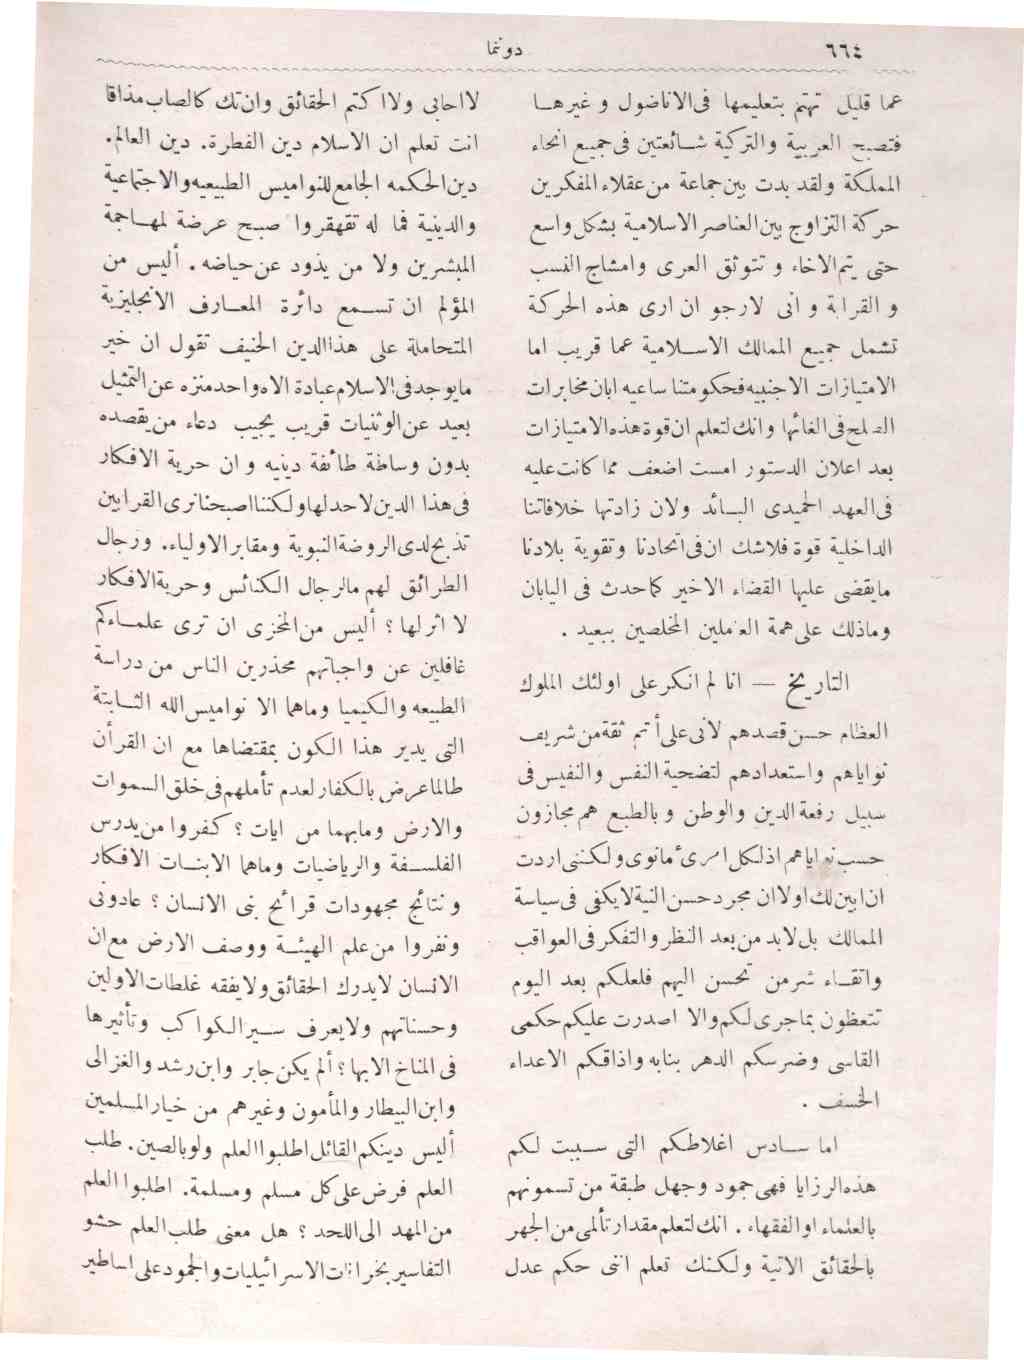 ٦٦٤
دونما
عما قليل تهتم بتعليمها فى الاناضول وغيرهــا
فتصبح العربية والتركية شــائعتين فى جميع انحاء
المملكة ولقد بدت بين جماعة من عقلاء المفكرين
حركة التزاوج بين العناصر الاسلامية بشكل واسع
حتى يتم الاخاء وتتوثق العرى وامشاج النسب
والقرابة وانى لارجو ان ارى هذه الحركة
تشمل جميع الممالك الاســلامية عما قريب اما
الامتيازات الاجنبيه فحكومتنا ساعيه ابان مخابرات
الصلح فى الغائها وانك لتعلم ان قوة هذه الامتيازات
بعد اعلان الدستور امست اضعف مما كانت عليه
فى العهد الحميدى البــائد ولان زادتها خلافاتنا
الداخلية قوة فلاشك ان فى اتحادنا وتقوية بلادنا
مايقضى عليها القضاء الاخير كما حدث فى اليابان
وماذلك على همة العاملين المخلصين ببعيد .
التاريخ — انا لم انكر على اولئك الملوك
العظام حسن قصدهم لانى على أتم ثقة من شريف
نواياهم واستعدادهم لتضحية النفس والنفيس فى
سبيل رفعة الدين والوطن وبالطبع هم مجازون
حسب نواياهم اذلكل امرئ مانوى ولكننى اردت
ان ابين لك اولا ان مجرد حسن النية لايكفى فى سياسة
الممالك بل لابد من بعد النظر والتفكر فى العواقب
واتقــاء شر من تحسن اليهم فلعلكم بعد اليوم
تتعظون بماجرى لكم والا اصدرت عليكم حكمى
القاسى وضرسكم الدهر بنابه واذاقكم الاعداء
الخسف .
اما ســادس اغلاطكم التى ســببت لكم
هذه الرزايا فهى جمود وجهل طبقة من تسمونهم
بالعلماء او الفقهاء . انك لتعلم مقدار تألمى من الجهر
بالحقائق الاتية ولكنك تعلم اننى حكم عدل
لااحابى ولاا كتم الحقائق وان تك كالصاب مذاقا
انت تعلم ان الاسلام دين الفطرة. دين العالم.
دين الحكمه الجامع للنواميس الطبيعيه والاجتماعية
والدينية فما له تقهقر وا صبح عرضة لمهــاجمة
المبشرين ولا من يذود عن حياضه . أليس من
المؤلم ان تســمع دائرة المعــارف الانجليزية
المتحاملة على هذا الدين الحنيف تقول ان خير
مايوجد فى الاسلام عبادة الاه واحد منزه عن التمثيل
بعيد عن الوثنيات قريب يجيب دعاء من يقصده
بدون وساطة طائفة دينيه وان حرية الافكار
فى هذا الدين لاحد لها ولكننا اصبحنا نرى القرابين
تذبح لدى الروضة النبوية ومقابر الاولياء. ورجال
الطرائق لهم مالرجال الكنائس وحرية الافكار
لا اثر لها ؟ أليس من المخزى ان ترى علمــاءكم
غافلين عن واجباتهم محذرين الناس من دراسة
الطبيعه والكيميا وماهما الا نواميس الله الثــابتة
التى يدير هذا الكون بمقتضاها مع ان القرأن
طالما عرض بالكفار لعدم تأملهم فى خلق السموات
والارض ومابهما من ايات ؟ كفروا من يدرس
الفلســفة والرياضيات وماهما الابنــات الافكار
ونتائج مجهودات قرائح بنى الانسان ؟ عادونى
ونفروا من علم الهيئــة ووصف الارض مع ان
الانسان لايدرك الحقائق ولايفقه غلطات الاولين
وحسناتهم ولايعرف ســير الكواكب وتأثيرها
فى المناخ الابها ؟ ألم يكن جابر وابن رشد والغزالى
وابن البيطار والمأمون وغيرهم من خيار المسلمين
أليس دينكم القائل اطلبوا العلم ولو بالصين. طلب
العلم فرض على كل مسلم ومسلمة. اطلبوا العلم
من المهد الى اللحد ؟ هل معنى طلب العلم حشو
التفاسير بخرافات الاسرائيليات والجمود على اساطير